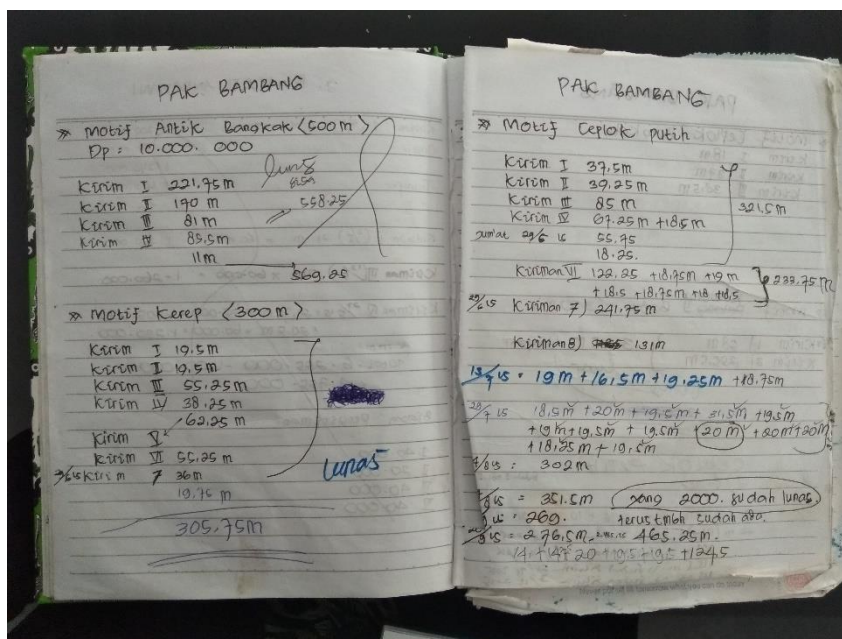 PAK BAMBANG
» Motif Antik Bangkak <500 m>
Dp : 10.000.000
lunas
Kirim I 221,75 m
Kirim II 170 m 558.25
Kirim III 81 m
Kirim IV 85,5 m
11 m
569.25
» Motif Kerep <300 m>
Kirim I 19.5 m
Kirim I 19.5 m
Kirim III 55.25 m
Kirim IV 38.25 m
62,25 m
Kirim V
Kirim VI 55,25 m
Kirim 7 36 m
lunas
19.75 m
305.75 m
PAK BAMBANG
» Motif Ceplok putih
Kirim I 37.5 m
Kirim II 39.25 m
Kirim III 85 m
321,5 m
Kirim IV 67.25 m + 18,5 m
jumat 29/5 15 55.75
18.25.
Kiriman VI 122.25 + 18,75 m + 19 m
+ 18.5 + 18,75 m + 18 + 18,5
233.75 m
Kiriman 7) 241.75 m
Kiriman 8) 131 m
13/7 15 = 19 m + 16,5 m + 19.25 m + 18.75 m
18,5 m + 20 m + 19,5 m + 31,5 m + 19,5 m
+ 19 m + 19,5 m + 19,5 m + 20 m + 20 m + 20 m
+ 18,25 m + 19,5 m
302 m
= 351.5 m yang 2000. sudah lunas
= 269. terus tmbh sudah ada.
= 276,5 m 465.25 m.
14 + 14 + 20 + 19.5 + 19.5 + 124.5